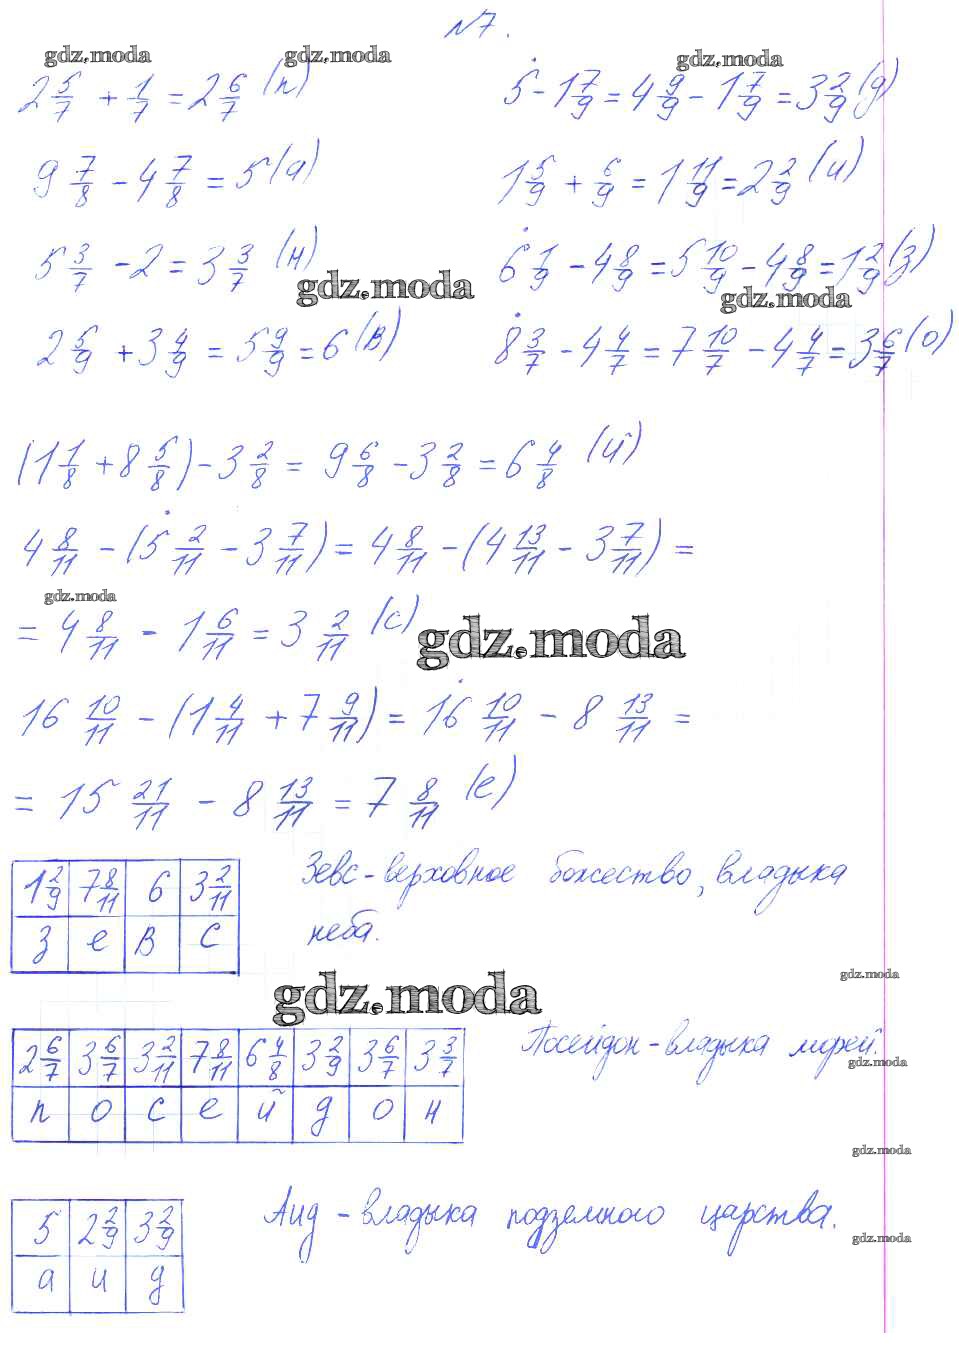 №7.
gdz.moda gdz.moda gdz.moda
2 5/7 + 1/7 = 2 6/7 (п) 5 - 1 7/9 = 4 9/9 - 1 7/9 = 3 2/9 (д)
9 7/8 - 4 7/8 = 5 (а) 1 5/9 + 6/9 = 1 11/9 = 2 2/9 (и)
5 3/7 - 2 = 3 3/7 (н) 6 1/9 - 4 8/9 = 5 10/9 - 4 8/9 = 1 2/9 (з)
gdz.moda gdz.moda
2 5/9 + 3 4/9 = 5 9/9 = 6 (в) 8 3/7 - 4 4/7 = 7 10/7 - 4 4/7 = 3 6/7 (о)
(1 1/8 + 8 5/8) - 3 2/8 = 9 6/8 - 3 2/8 = 6 4/8 (й)
4 8/11 - (5 2/11 - 3 7/11) = 4 8/11 - (4 13/11 - 3 7/11) =
gdz.moda
= 4 8/11 - 1 6/11 = 3 2/11 (с)
gdz.moda
16 10/11 - (1 4/11 + 7 9/11) = 16 10/11 - 8 13/11 =
= 15 21/11 - 8 13/11 = 7 8/11 (е)
1 2/9 7 8/11 6 3 2/11
з е в с
Зевс - верховное божество, владыка
неба.
gdz.moda
gdz.moda
2 6/7 3 6/7 3 2/11 7 8/11 6 4/8 3 2/9 3 6/7 3 3/7
п о с е й д о н
Посейдон - владыка морей.
gdz.moda
gdz.moda
5 2 2/9 3 2/9
а и д
Аид - владыка подземного царства.
gdz.moda